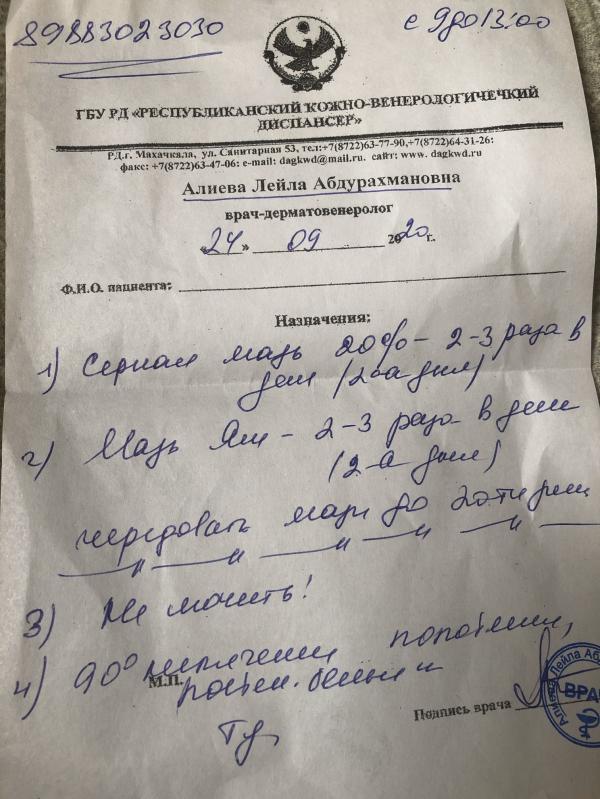 89883023030
с 9 до 13:00
ГБУ РД «РЕСПУБЛИКАНСКИЙ КОЖНО-ВЕНЕРОЛОГИЧЕЧКИЙ
ДИСПАНСЕР»
РД,г. Махачкала, ул. Санитарная 53, тел:+7(8722)63-77-90,+7(8722)64-31-26:
факс: +7(8722)63-47-06: e-mail: dagkwd@mail.ru. сайт: www. dagkwd.ru
Алиева Лейла Абдурахмановна
врач-дерматовенеролог
«24» 09 2020 г.
Ф.И.О. пациента:
Назначения:
1) Серная мазь 20% – 2-3 раза в
день (2-а дня)
2) Мазь Ям – 2-3 раза в день
(2-а дня)
чередовать мази до 20ти дней
3) Не мочить!
4) 90°
М.П.
Подпись врача
ВРАЧ